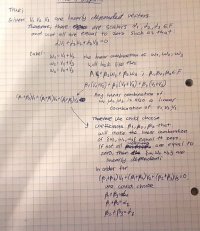 True;
Given v₁ v₂ v₃ are linearly dependent vectors
Therefore, there are scalars α₁, α₂, α₃ ∈ F
and not all equal to zero such that
α₁v₁ + α₂v₂ + α₃v₃ = 0
Label:
w₁ = v₁ + v₂
w₂ = v₁ + v₃
w₃ = v₂ + v₃
the linear combination of w₁, w₂, w₃
will look like this
β₁w₁ + β₂w₂ + β₃w₃ β₁, β₂, β₃ ∈ F
β₁(v₁+v₂) + β₂(v₁+v₃) + β₃(v₂+v₃)
(β₁+β₂)v₁ + (β₁+β₃)v₂ + (β₂+β₃)v₃
Any linear combination of
w₁ w₂ w₃ is also a linear
combination of v₁ v₂ v₃
Therefore we could choose
coefficients β₁, β₂, β₃ that
will make the linear combination
of w₁ w₂ w₃ equal to zero
if not all are equal to
zero, then w₁ w₂ w₃ are
linearly dependent
In order for
(β₁+β₂)v₁ + (β₁+β₃)v₂ + (β₂+β₃)v₃ = 0
we could choose
β₁ + β₂ = α₁
β₁ + β₃ = α₂
β₂ + β₃ = α₃